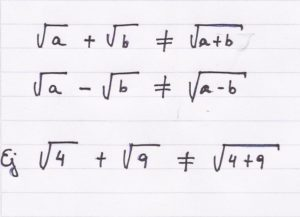 √a + √b ≠ √a+b
√a - √b ≠ √a-b
Ej √4 + √9 ≠ √4+9